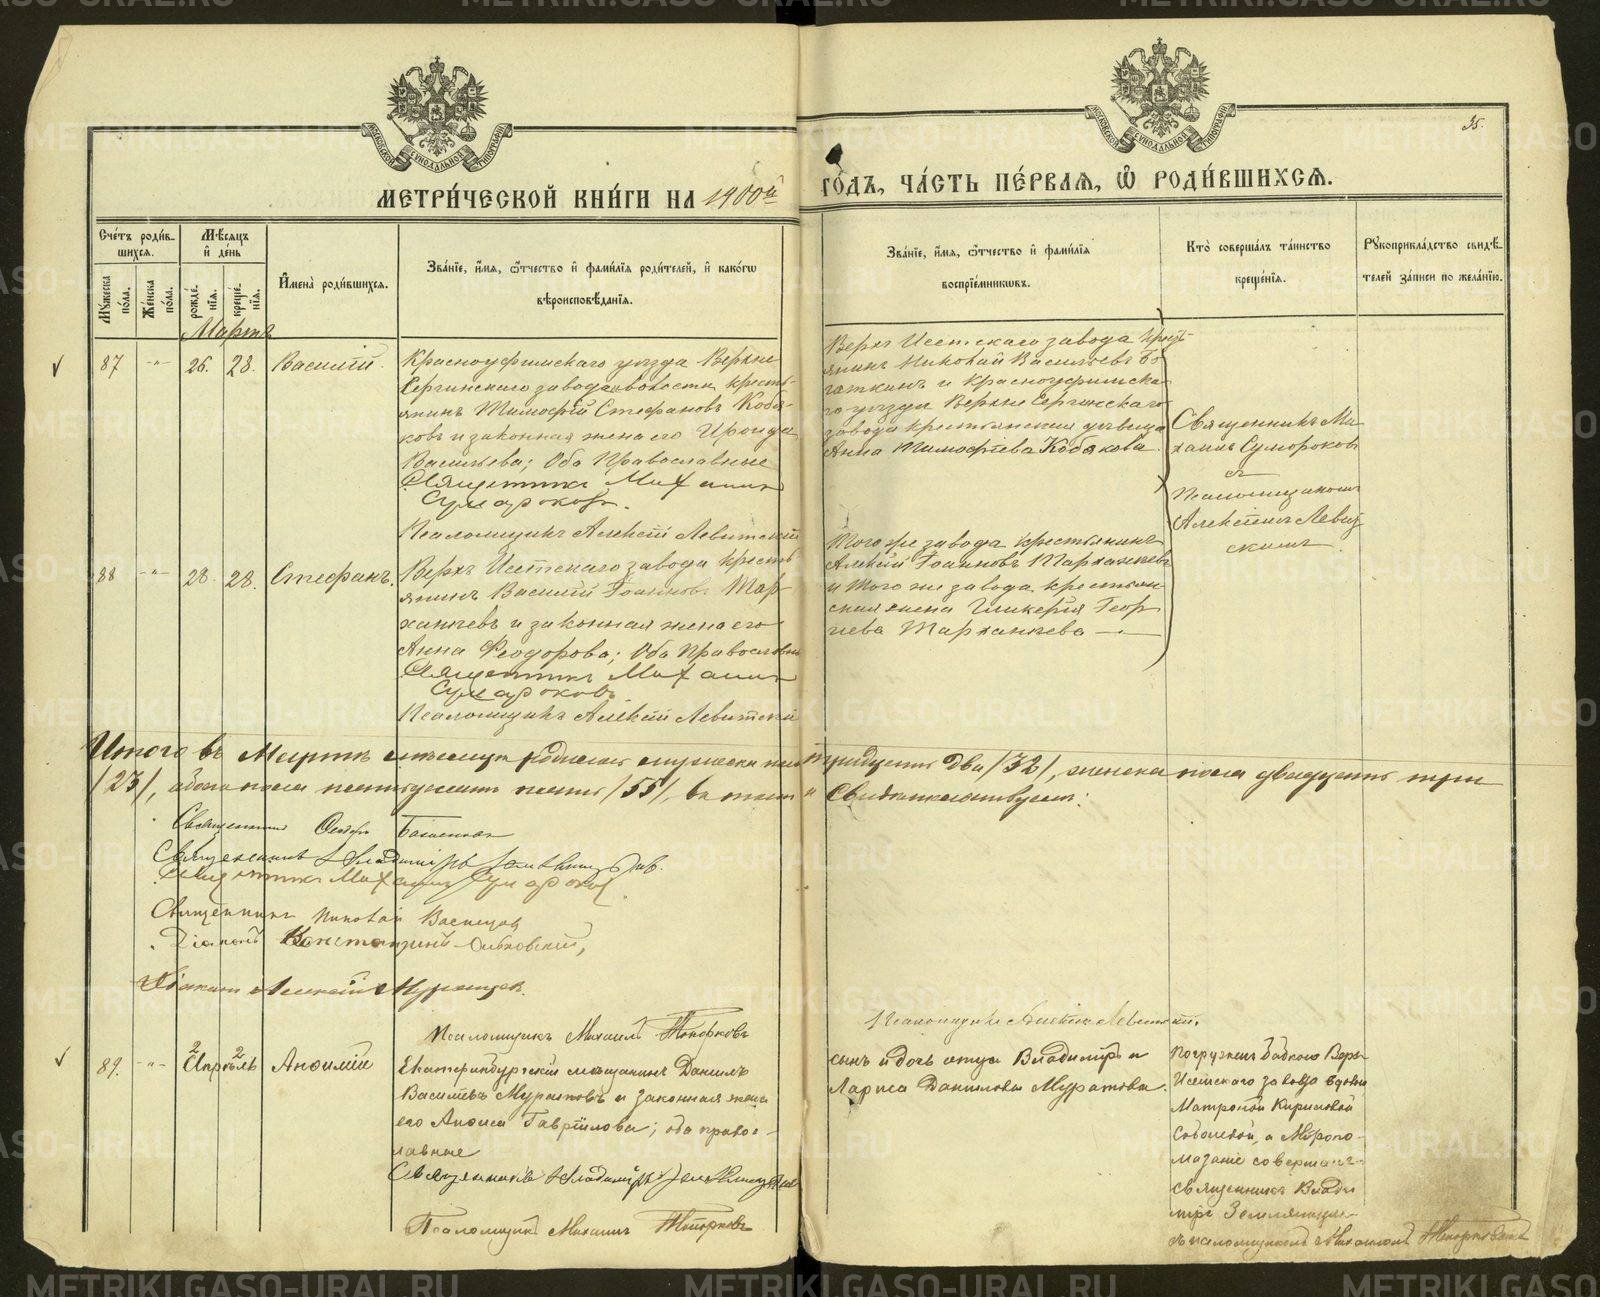 35.
МЕТРИ́ЧЕСКОЙ КНИ́ГИ НА 1900й ГО́ДЪ, ЧА́СТЬ ПЕ́РВАЯ, Ѽ РОДИ́ВШИХСЯ.
Сче́тъ роди́вшихся.
Му́жеска по́ла.
Же́нска по́ла.
Мѣ́сяцъ и҆ де́нь
рожде́нїя.
креще́нїя.
И҆мена̀ роди́вшихся.
Зва́нїе, и҆́мя, ѻ҆́тчество и҆ фами́лїя роди́телей, и҆ како́гѡ
вѣроисповѣ́данїя.
Зва́нїе, и҆́мя, ѻ҆́тчество и҆ фами́лїя
воспрїе́мникѡвъ.
Кто̀ соверша́лъ та́инство
креще́нїя.
Рꙋкоприкла́дство свидѣ́-
телей за́писи по жела́нїю.
Мартъ
87 -"- 26. 28. Василій.
Красноуфимскаго уѣзда Верхне
Сергинскаго завода волости кресть-
янинъ Тимофей Стефановъ Кобя-
ковъ и законная жена его Ироида
Васильева; Оба Православные
Священникъ Михаилъ
Сумароковъ.
Псаломщикъ Алексій Левитскій
Верхъ Исетскаго завода крест-
янинъ Николай Васильевъ Бо-
гаткинъ и Красноуфимска-
го уѣзда Верхне Сергинскаго
завода крестьянская дѣвица
Анна Тимофеева Кобякова.
Священникъ Ми-
хаилъ Сумароковъ
съ
Псаломщикомъ
Алексіемъ Левит-
скимъ.
88 -"- 28. 28. Стефанъ.
Верхъ Исетскаго завода кресть-
янинъ Василій Іоанновъ Тар-
ханѣевъ и законная жена его
Анна Феодорова; Оба Православн
Священникъ Михаилъ
Сумароковъ.
Псаломщикъ Алексій Левитскій
Того же завода крестьянинъ
Алексій Іоанновъ Тарханѣевъ
и того же завода крестьян-
ская жена Гликерія Геор-
гіева Тарханѣева
Итого въ Мартѣ мѣсяцѣ родилось мужеска пола тридцать два /32/, женска пола двадцать три
/23/, обоего пола пятьдесятъ пять /55/, въ томъ и Свидѣтельствуемъ:
Священникъ
Священникъ Владиміръ
Священникъ Михаилъ Сумароковъ
Священникъ Николай
Діаконъ Константинъ
Діаконъ Алексій
Псаломщикъ Михаилъ Топорковъ
Псаломщикъ Алексій Левитскій.
89. -"- 2 2 Апрѣль
Екатеринбургскій мѣщанинъ Даніилъ
Васильевъ Муратовъ и законная жена
его Анфиса Гавріилова; оба право-
славные
Священникъ Владиміръ Земляницынъ
Псаломщикъ Михаилъ Топорковъ
сынъ и дочь отца Владиміръ и
Лариса Даниловы Муратовы.
Погруженъ бабкою Верх-
Исетскаго завода вдовою
Матроной Кириловой
а Мѵропо-
мазаніе совершалъ
священникъ Влади-
міръ Земляницынъ
съ псаломщикомъ Михаиломъ Топорковымъ
METRIKI.GASO-URAL.RU